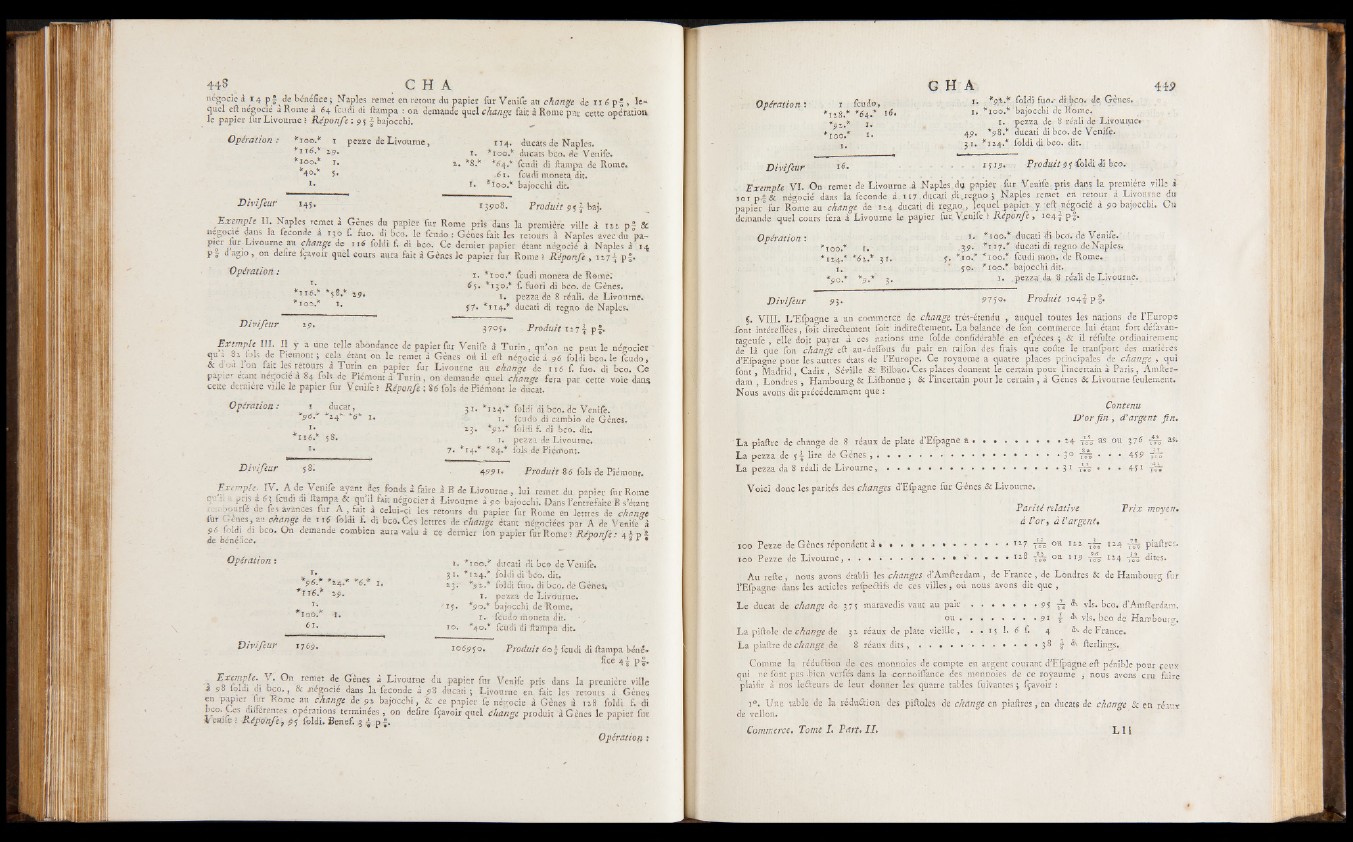 448 C H A
négocié à 14 p 0/0 de bénéfice ; Naples remet en retour du papier ſur Veniſe au change de 116 p 0/0, le-
quel eſt négocié à Rome à 64 ſcudi di ſtampa : on demande quel change fait à Rome par cette opération
le papier ſur Livourne ? Réponſe : 95 bajocchi.
Opération : *100.* 1 pezze de Livourne, 114. ducats de Naples.
*116.* 29. 1. *100.* ducats bco. de Veniſe.
*100.* 1. 2. *8.* *64.* ſcudi di ſtampa de Rome.
*40.* 5. .61. ſcudi moneta dit.
1. 1. *100.* bajocchi dit.
Diviſeur 145. 13908. Produit 95 baj.
Exemple II. Naples remet à Gênes du papier ſur Rome pris dans la première ville à 121 p 0/0 &
négocié dans la ſeconde à 130 ſ. fuo. di bco. le ſcudo : Gênes fait les retours à Naples avec du pa-
pier ſur Livourne au change de 116 ſoldi f. di bco. Ce dernier papier étant négocié à Naples à 14
p 0/0 d'agio, on deſire ſçavoir quel cours aura fait à Gênes le papier ſur Rome ? Réponſe, 127 p 0/0.
Opération : 1. *100.* ſcudi moneta de Rome.
1. 65. *130.* ſ. fuori di bco. de Gênes.
*116.* *58.* 29. 1. pezza de 8 réali. de Livourne.
*100. 1. 57. *114.* ducati di regno de Naples.
Diviſeur 29. 3705. Produit 127 p 0/0.
Exemple III. Il y a une telle abondance de papier ſur Veniſe à Turin, qu'on ne peut le négocier
qu'à 82 ſols de Piémont ; cela étant on le remet à Gênes où il eſt négocié à 96 ſoldi bco. le ſcudo,
& d'où l'on fait les retours à Turin en papier ſur Livourne au change de 116 ſ. fuo. di bco. Ce
papier étant négocié à 84 ſols de Piémont à Turin, on demande quel change ſera par cette voie dans
cette dernière ville le papier ſur Veniſe ? Réponſe : 86 ſols de Piémont le ducat.
Opération : 1 ducat, 31. *124.* ſoldi di bco. de Veniſe.
*96.* *24* *6* 1. 1. ſcudo di cambio de Gênes.
1. 23. *92.* ſoldi f. di bco. dit.
*116.* 58. 1. pezza de Livourne.
1. 7. *14.* *84.* ſols de Piémont.
Diviſeur 58. 4991. Produit 86 ſols de Piémont.
Exemple. IV. A de Veniſe ayant des fonds à faire à B de Livourne, lui remet du papier ſur Rome
qu'il a pris à 61 ſcudi di ſtampa & qu'il fait négocier à Livourne à 90 bajocchi. Dans l'entrefaite B s'étant
rembourſé de ſes avances ſur A, fait à celui-ci les retours du papier ſur Rome en lettres de change
ſur Gênes, au change de 116 ſoldi f. di bco. Ces lettres de change étant négociées par A de Veniſe à
96 ſoldi di bco. On demande combien aura valu à ce dernier ſon papier ſur Rome ? Réponſe : 4 p 0/0
de bénéfice.
Opération : 1. *100.* ducati di bco de Veniſe.
1. 31. *124.* ſoldi di bco. dit.
*96.* *24.* *6.* 1. 23. *92.* ſoldi fuo. di bco. de Gênes.
*116.* 29. 1. pezza de Livourne.
1. 15. *90.* bajocchi de Rome.
*100.* 1. 1. ſcudo moneta dit.
61. 10. *40.* ſcudi di ſtampa dit.
Diviſeur 1769. 106950. Produit 60 ſcudi di ſtampa béné-
fice 4 p 0/0.
Exemple. V. On remet de Gênes à Livourne du papier ſur Veniſe pris dans la première ville
à 98 ſoldi di bco., & négocié dans la ſeconde à 98 ducati ; Livourne en fait les retours à Gênes
en papier ſur Rome au change de 92 bajocchi, & ce papier ſe négocie à Gênes à 128 ſoldi f. di
bco. Ces différentes opérations terminées, on deſire ſçavoir quel change produit à Gênes le papier ſur
Veniſe ? Réponſe, 95 ſoldi. Benef. 3 p 0/0.
Opération :
C H A 449
Opération : 1 ſcudo, 1. *92.* ſoldi fuo. di bco. de Gênes.
*128.* *64.* 16. 1. *100.* bajocchi de Rome.
*92.* 1. 1. pezza de 8 réali de Livourne.
*100.* 1. 49. *98.* ducati di bco. de Veniſe.
1. 31. *124.* ſoldi di bco. dit.
Diviſeur 16. 1519. Produit 95 ſoldi di bco.
Exemple VI. On remet de Livourne à Naples du papier ſur Veniſe pris dans la première ville à
101 p 0/0 & négocié dans la ſeconde à 117 ducati di regno ; Naples remet en retour à Livourne du
papier ſur Rome au change de 124 ducati di regno, lequel papier y eſt négocié à 90 bajocchi. On
demande quel cours fera à Livourne le papier ſur Veniſe ? Réponſe, 104 p 0/0.
Opération : 1. *100.* ducati di bco. de Veniſe.
*100.* 1. 39. *117.* ducati di regno de Naples.
*124.* *62.* 31. 5. *10.* *100.* ſcudi mon. de Rome.
1. 50. *100.* bajocchi dit.
*90.* *9.* 3. 1. pezza da 8 réali de Livourne.
Diviſeur 93. 9750. Produit 104 p 0/0.
§. VIII. L'Eſpagne a un commerce de change très-étendu, auquel toutes les nations de l'Europe
ſont intéreſſées, ſoit directement ſoit indirectement. La balance de ſon commerce lui étant fort déſavan-
tageuſe, elle doit payer à ces nations une ſolde conſidérable en eſpèces ; & il réſulte ordinairement
de là que ſon change eſt au-deſſous du pair en raiſon des frais que coûte le tranſport des matières
d'Eſpagne pour les autres états de l'Europe. Ce royaume a quatre places principales de change, qui
ſont, Madrid, Cadix, Séville & Bilbao. Ces places donnent le certain pour l'incertain à Paris, Amſter-
dam, Londres, Hambourg & Liſbonne ; & l'incertain pour le certain, à Gênes & Livourne ſeulement.
Nous avons dit précédemment que :
Contenu
D'or fin, d'argent fin.
La piaſtre de change de 8 réaux de plate d'Eſpagne a . . . . . . . . . 24 as ou 376 as.
La pezza de 5 lire de Gênes, . . . . . . . . . . . . . . . . . 30 . . . 459
La pezza da 8 réali de Livourne, . . . . . . . . . . . . . . . . 31 . . . 451
Voici donc les parités des changes d'Eſpagne ſur Gênes & Livourne.
Parité relative Prix moyen.
à l'or, à l'argent.
100 Pezze de Gênes répondent à . . . . . . . . . . . . 127 ou 122 124 piaſtres.
100 Pezze de Livourne, . . . . . . . . . . . . . . . 128 ou 119 124 dites.
Au reſte, nous avons établi les changes d'Amſterdam, de France, de Londres & de Hambourg ſur
l'Eſpagne dans les articles reſpectifs de ces villes, où nous avons dit que,
Le ducat de change de 375 maravedis vaut au pair . . . . . . . 95 vls. bco. d'Amſterdam.
ou . . . . . . . . 91 vls. bco de Hambourg.
La piſtole de change de 32 réaux de plate vieille, . . 15 l. 6 ſ. 4 de France.
La piaſtre de change de 8 réaux dits, . . . . . . . . . . . . 38 ſterlings.
Comme la réduction de ces monnoies de compte en argent courant d'Eſpagne eſt pénible pour ceux
qui ne ſont pas bien verſés dans la connoiſſance des monnoies de ce royaume, nous avons cru faire
plaiſir à nos lecteurs de leur donner les quatre tables ſuivantes ; ſçavoir :
1°. Une table de la réduction des piſtoles de change en piaſtres, en ducats de change & en réaux
de vellon.
Commerce. Tome I. Part. II. L l l